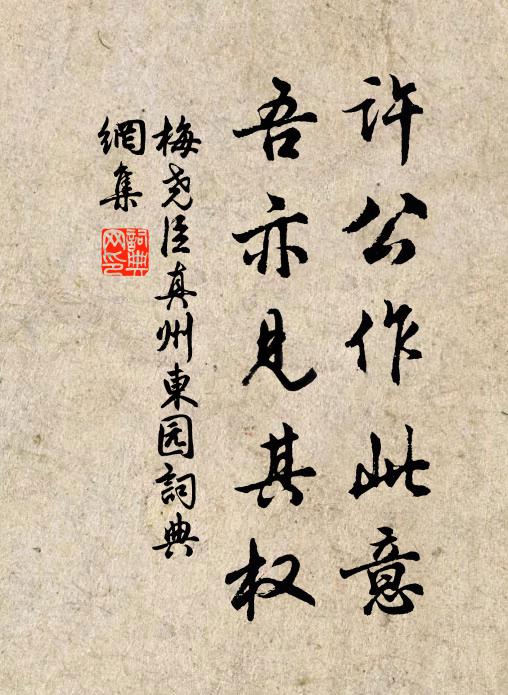 许公作此意
吾亦见其权
梅尧臣真州東园詞典
網集
詞典网印